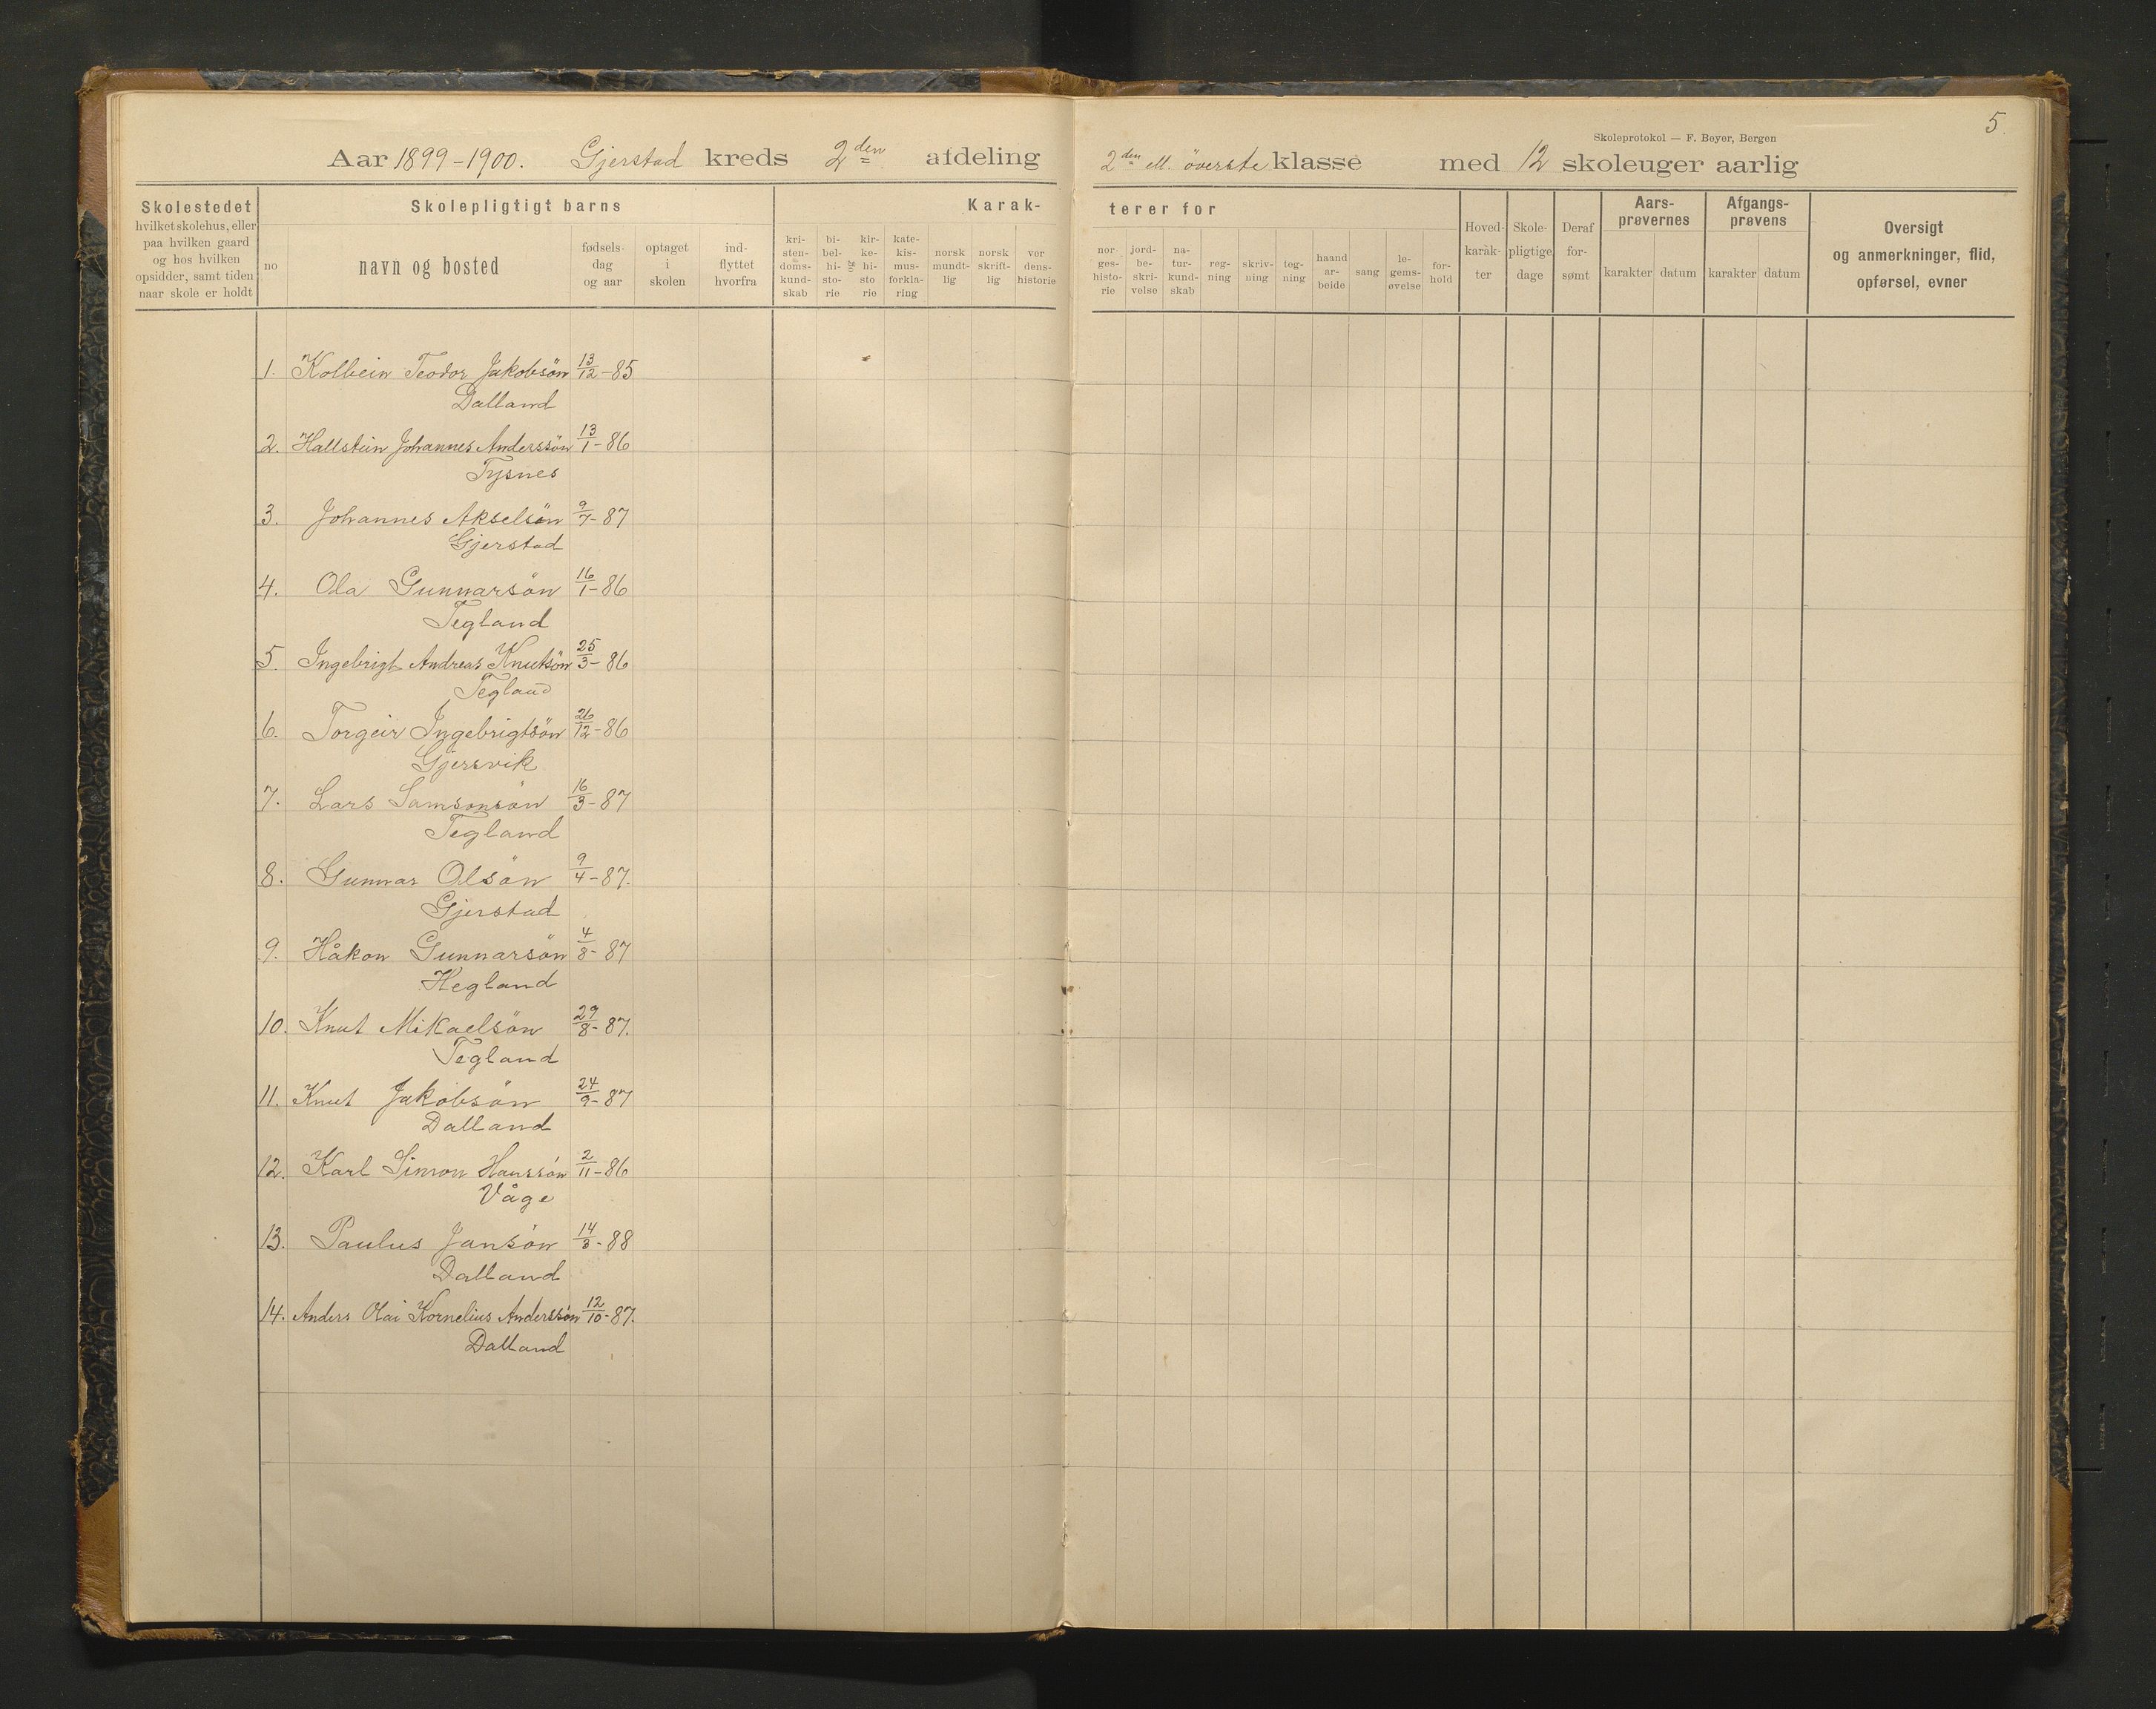 5.
Skoleprotokol — F. Beyer, Bergen
Aar 1899-1900. Gjerstad kreds 2den afdeling 2den ell. överste klasse med 12 skoleuger aarlig
Skolestedet
hvilket skolehus, eller
paa hvilken gaard
og hos hvilken
opsidder, samt tiden
naar skole er holdt
Skolepligtigt barns
no
navn og bosted
fødsels-
dag
og aar
optaget
i
skolen
ind-
flyttet
hvorfra
Karak-
terer for
kri-
sten-
doms-
kund-
skab
bi-
bel-
hi-
sto-
rie
og
kir-
ke-
hi-
sto
rie
kate-
kis-
mus-
forkla-
ring
norsk
mundt-
lig
norsk
skrift-
lig
ver
dens-
historie
nor
ges-
histo-
rie
jord-
be-
skri-
velse
na-
tur-
kund-
skab
reg-
ning
skriv-
ning
teg-
ning
haand
ar-
beide
sang
le-
gems-
øvelse
for-
hold
Hoved-
karak-
ter
Skole-
pligtige
dage
Deraf
for-
sømt
Aars-
prøvernes
karakter datum
Afgangs-
prøvens
karakter datum
Oversigt
og anmerkninger, flid,
opførsel, evner
1. Kolbein Teodor Jakobsön 13/12-85
Dalland
2. Hallstein Johannes Anderssön 13/1-86
Tysnes
3. Johannes Akselsön 9/7-87
Gjerstad
4. Ola Gunnarsön 16/1-86
Tegland
5. Ingebrigt Andreas Knutsön 25/3-86
Tegland
6. Torgeir Ingebrigtsön 26/12-86
Gjersvik
7. Lars Samsonsön 16/3-87
Tegland
8. Gunnar Olsön 9/4-87.
Gjerstad
9. Håkon Gunnarsön 4/8-87
Hegland
10. Knut Mikaelsön 29/8-87.
Tegland
11. Knut Jakobsön 24/9-87
Dalland
12. Karl Simon Hanssön 2/11-86
Våge
13. Paulus Jansön 14/3-88
Dalland
14. Anders Olai Kornelius Anderssön 12/10-87.
Dalland